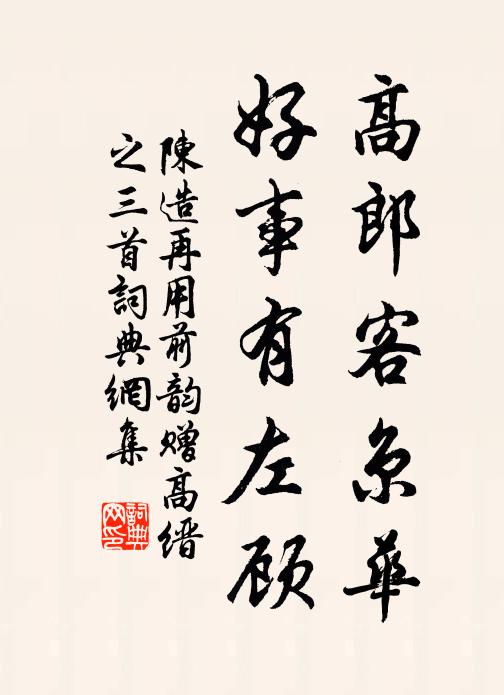 高郎客京華
好事有左顾
陳造再用前韵赠高缙
之三首詞典網集
詞典
网印